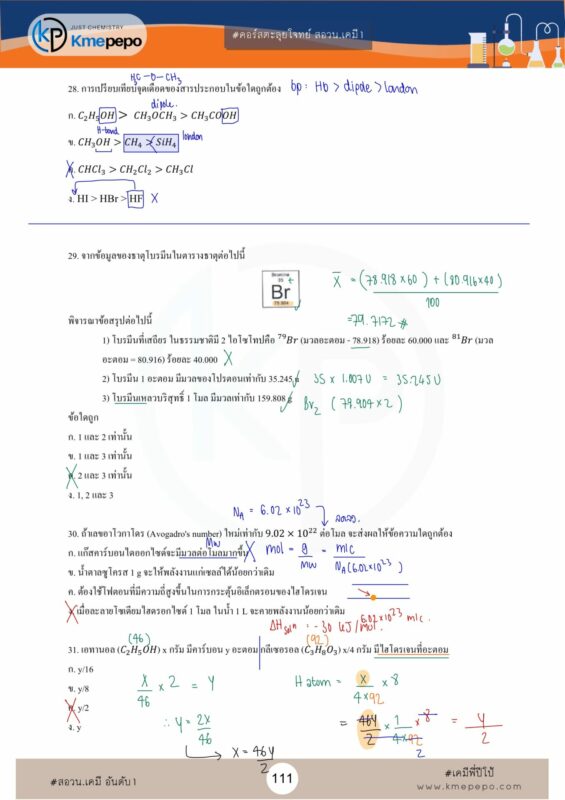 JUST CHEMISTRY
Kmepepo
#คอร์สตะลุยโจทย์ สอวน.เคมี 1
H₃C - O - CH₃
28. การเปรียบเทียบจุดเดือดของสารประกอบในข้อใดถูกต้อง bp : Hb > dipole > london
dipole.
ก. C₂H₅OH > CH₃OCH₃ > CH₃COOH
H-bond
ข. CH₃OH > CH₄ > SiH₄ london
ค. CHCl₃ > CH₂Cl₂ > CH₃Cl
ง. HI > HBr > HF X
29. จากข้อมูลของธาตุโบรมีนในตารางธาตุต่อไปนี้
Bromine
35
Br
79.904
X̄ = (78.918 × 60) + (80.916 × 40)
100
= 79.7172
พิจารณาข้อสรุปต่อไปนี้
1) โบรมีนที่เสถียร ในธรรมชาติมี 2 ไอโซโทปคือ ⁷⁹Br (มวลอะตอม - 78.918) ร้อยละ 60.000 และ ⁸¹Br (มวล
อะตอม = 80.916) ร้อยละ 40.000 X
2) โบรมีน 1 อะตอม มีมวลของโปรตอนเท่ากับ 35.245 u 35 × 1.007 U = 35.245 U
3) โบรมีนเหลวบริสุทธิ์ 1 โมล มีมวลเท่ากับ 159.808 g Br₂ (79.904 × 2)
ข้อใดถูก
ก. 1 และ 2 เท่านั้น
ข. 1 และ 3 เท่านั้น
ค. 2 และ 3 เท่านั้น
ง. 1, 2 และ 3
N_A = 6.02 × 10²³ ลดลง
30. ถ้าเลขอาโวกาโดร (Avogadro's number) ใหม่เท่ากับ 9.02 × 10²² ต่อโมล จะส่งผลให้ข้อความใดถูกต้อง
Mw
ก. แก๊สคาร์บอนไดออกไซด์จะมีมวลต่อโมลมากขึ้น X mol = g/Mw = mlc/N_A(6.02×10²³)
ข. น้ำตาลซูโครส 1 g จะให้พลังงานแก่เซลล์ได้น้อยกว่าเดิม
ค. ต้องใช้โฟตอนที่มีความถี่สูงขึ้นในการกระตุ้นอิเล็กตรอนของไฮโดรเจน
ง. เมื่อละลายโซเดียมไฮดรอกไซด์ 1 โมล ในน้ำ 1 L จะคายพลังงานน้อยกว่าเดิม 6.02 × 10²³ mlc.
ΔH soln = -30 kJ/mol.
(46) (92)
31. เอทานอล (C₂H₅OH) x กรัม มีคาร์บอน y อะตอม กลีเซอรอล (C₃H₈O₃) x/4 กรัม มีไฮโดรเจนกี่อะตอม
ก. y/16
ข. y/8
ค. y/2
ง. y
x/46 × 2 = y
∴ y = 2x/46
x = 46y/2
H atom = x/4×92 × 8
= 46y/2 × 1/4×92 × 8 = y/2
2
#สอวน.เคมี อันดับ 1
111
#เคมีพี่ปีโป้
www.kmepepo.com